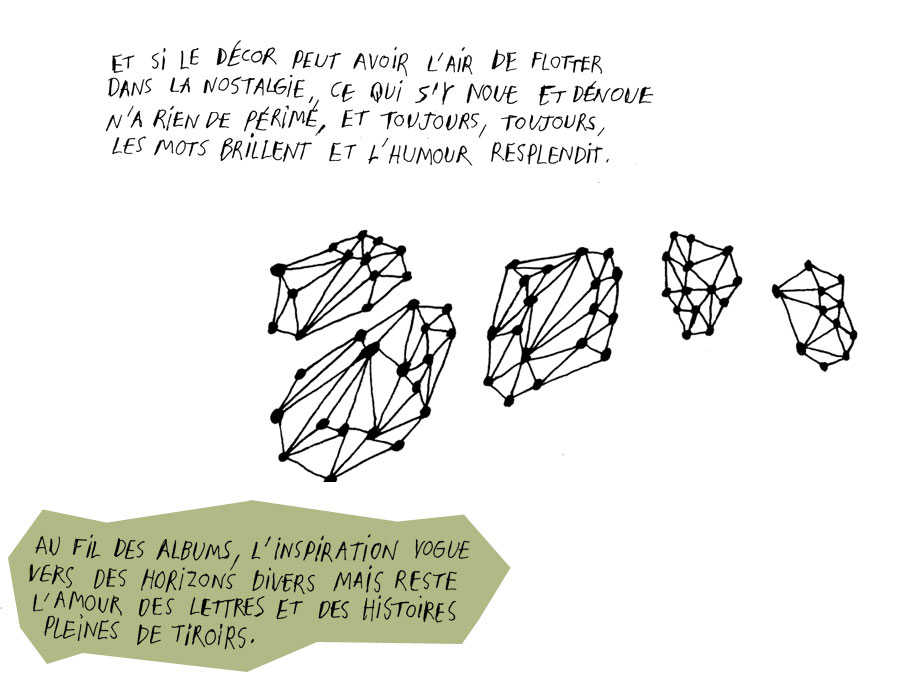 ET SI LE DÉCOR PEUT AVOIR L'AIR DE FLOTTER
DANS LA NOSTALGIE, CE QUI S'Y NOUE ET DÉNOUE
N'A RIEN DE PÉRIMÉ, ET TOUJOURS, TOUJOURS,
LES MOTS BRILLENT ET L'HUMOUR RESPLENDIT.
AU FIL DES ALBUMS, L'INSPIRATION VOGUE
VERS DES HORIZONS DIVERS MAIS RESTE
L'AMOUR DES LETTRES ET DES HISTOIRES
PLEINES DE TIROIRS.